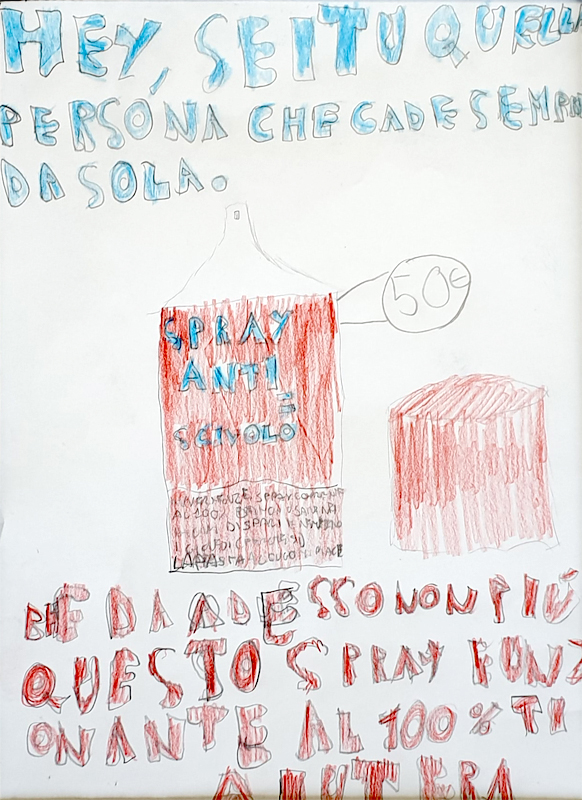 HEY, SEI TU QUELLA
PERSONA CHE CADE SEMPR
DA SOLA.
50€
SPRAY
ANTI
SCIVOLO
LA PASTA AL SUGO MI PIACE
BHF DA ADESSO NON PIÙ
QUESTO SPRAY FUNZI
ONANTE AL 100% TI
AIUTERA